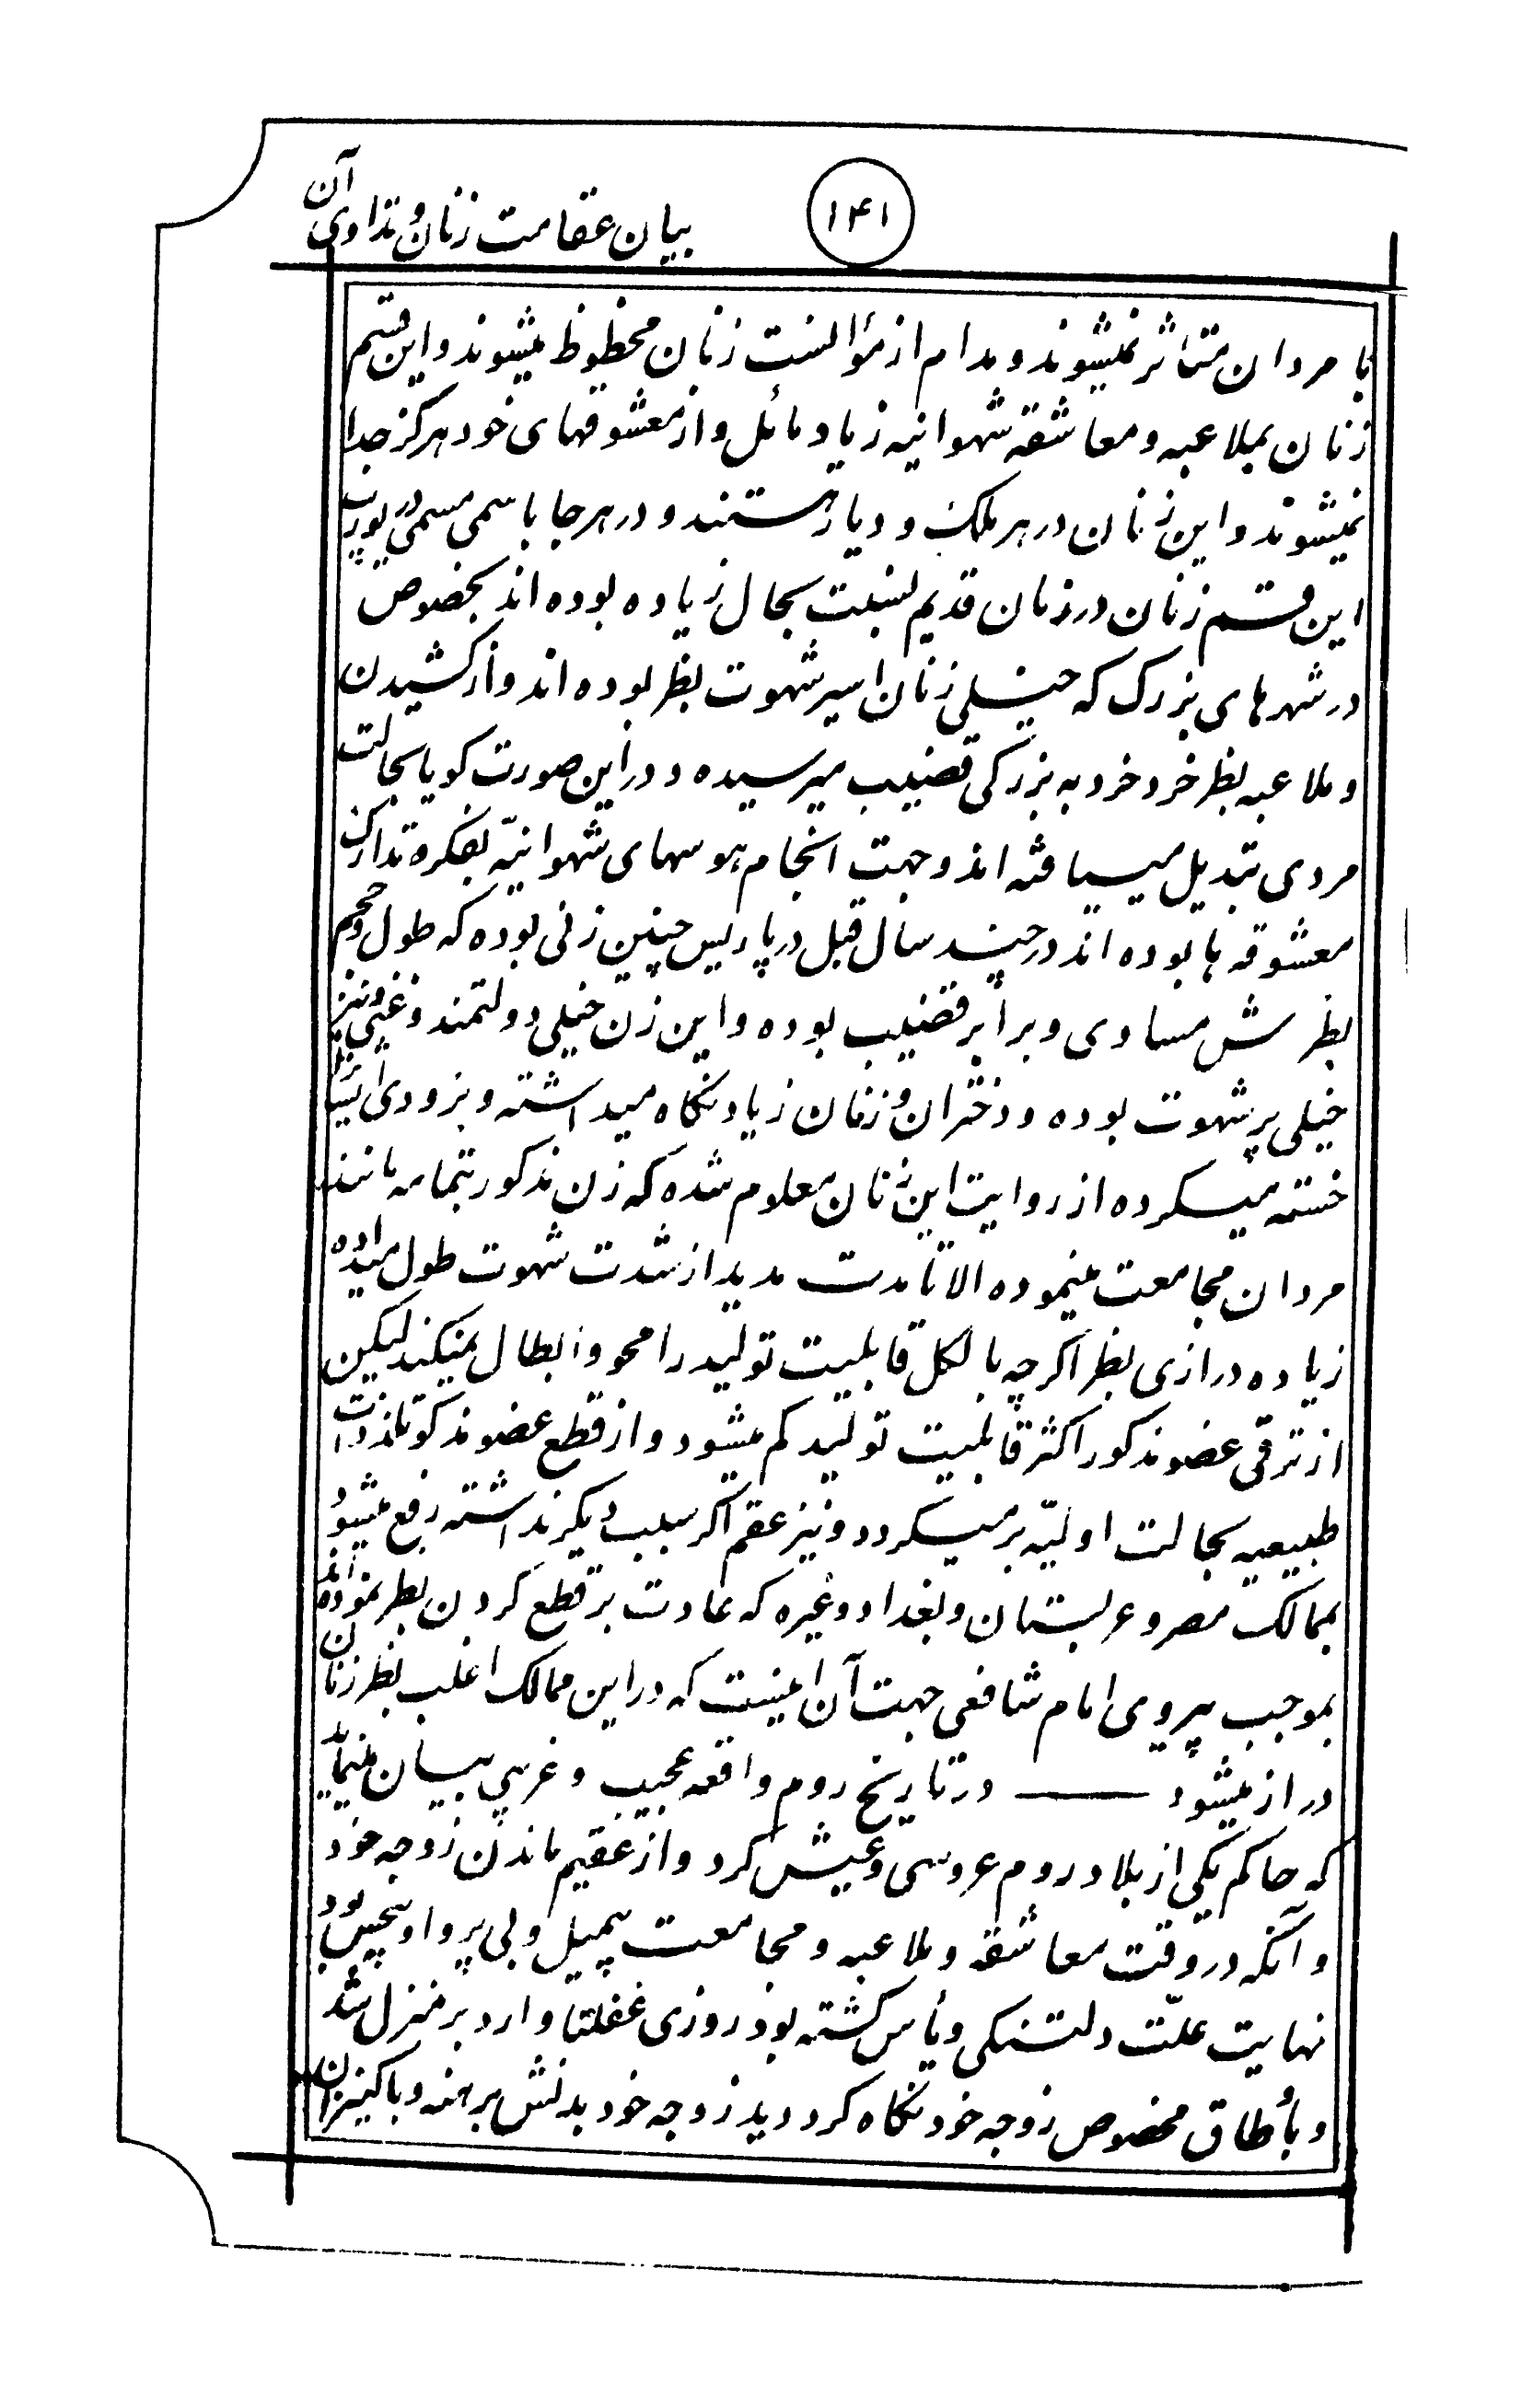 بیان عقامت زنان و تداوی آن
۱۴۱
با مردان متأثر نمیشوند و مدام از مؤالست زنان محظوظ میشوند و این قسم
زنان بملاعبه و معاشقه شهوانیه زیاد مائل و از معشوقهای خود هرگز جدا
نمیشوند و این زنان در هر ملک و دیار هستند و در هر جا باسمی مسمی در یورپ
این قسم زنان در زمان قدیم نسبت بحال زیاده بوده اند بخصوص
در شهرهای بزرک که خیلی زنان اسیر شهوت بظر بوده اند و از کشیدن
و ملاعبه بظر خرد خرد به بزرکی قضیب میرسیده و در این صورت کویا بحالت
مردی تبدیل میسیافته اند و جهت انجام هوسهای شهوانیّه بفکره تدارک
معشوقه ها بوده اند در چند سال قبل در پاریس چنین زنی بوده که طول و حجم
بظرش مساوی و برابر قضیب بوده و این زن خیلی دولتمند و غنی و نیز
خیلی پر شهوت بوده و دختران و زنان زیاد نکاه میداشته و بزودی
خسته میکرده از روایت این زنان معلوم شده که زن مذکور بتمامه مانند
مردان مجامعت مینموده الا تا مدت مدید از شدت شهوت طول میداده
زیاده درازی بظر اکرچه بالکل قابلیت تولید را محو و ابطال نمیکند لیکین
از ترقی عضو مذکور اکثر قابلیت تولید کم میشود و از قطع عضو مذکور تلذذات
طبیعیه بحالت اولیّه برمیکردد و نیز عقم اکر سبب دیکر نداشته رفع میشود
بممالک مصر و عربستان و بغداد و غیره که عادت بر قطع کردن بظر نموده اند
بموجب پیروی امام شافعی جهت آن اینیست که در این ممالک اغلب بظر زنان
دراز میشود ــــــ در تاریخ روم واقعه عجیب و غریبی بیان مینماید
که حاکم یکی از بلاد روم عروسی و عیش کرد و از عقیم ماندن زوجه خود
و آنکه در وقت معاشقه و ملاعبه و مجامعت بیمیل و بی پروا و بیحس بود
نهایت علّت دلتنکی و یأس کشته بود روزی غفلتا وارد بر منزل شد
و بأطاق مخصوص زوجه خود نکاه کرد دید زوجه خود بدنش برهنه و با کنیزان